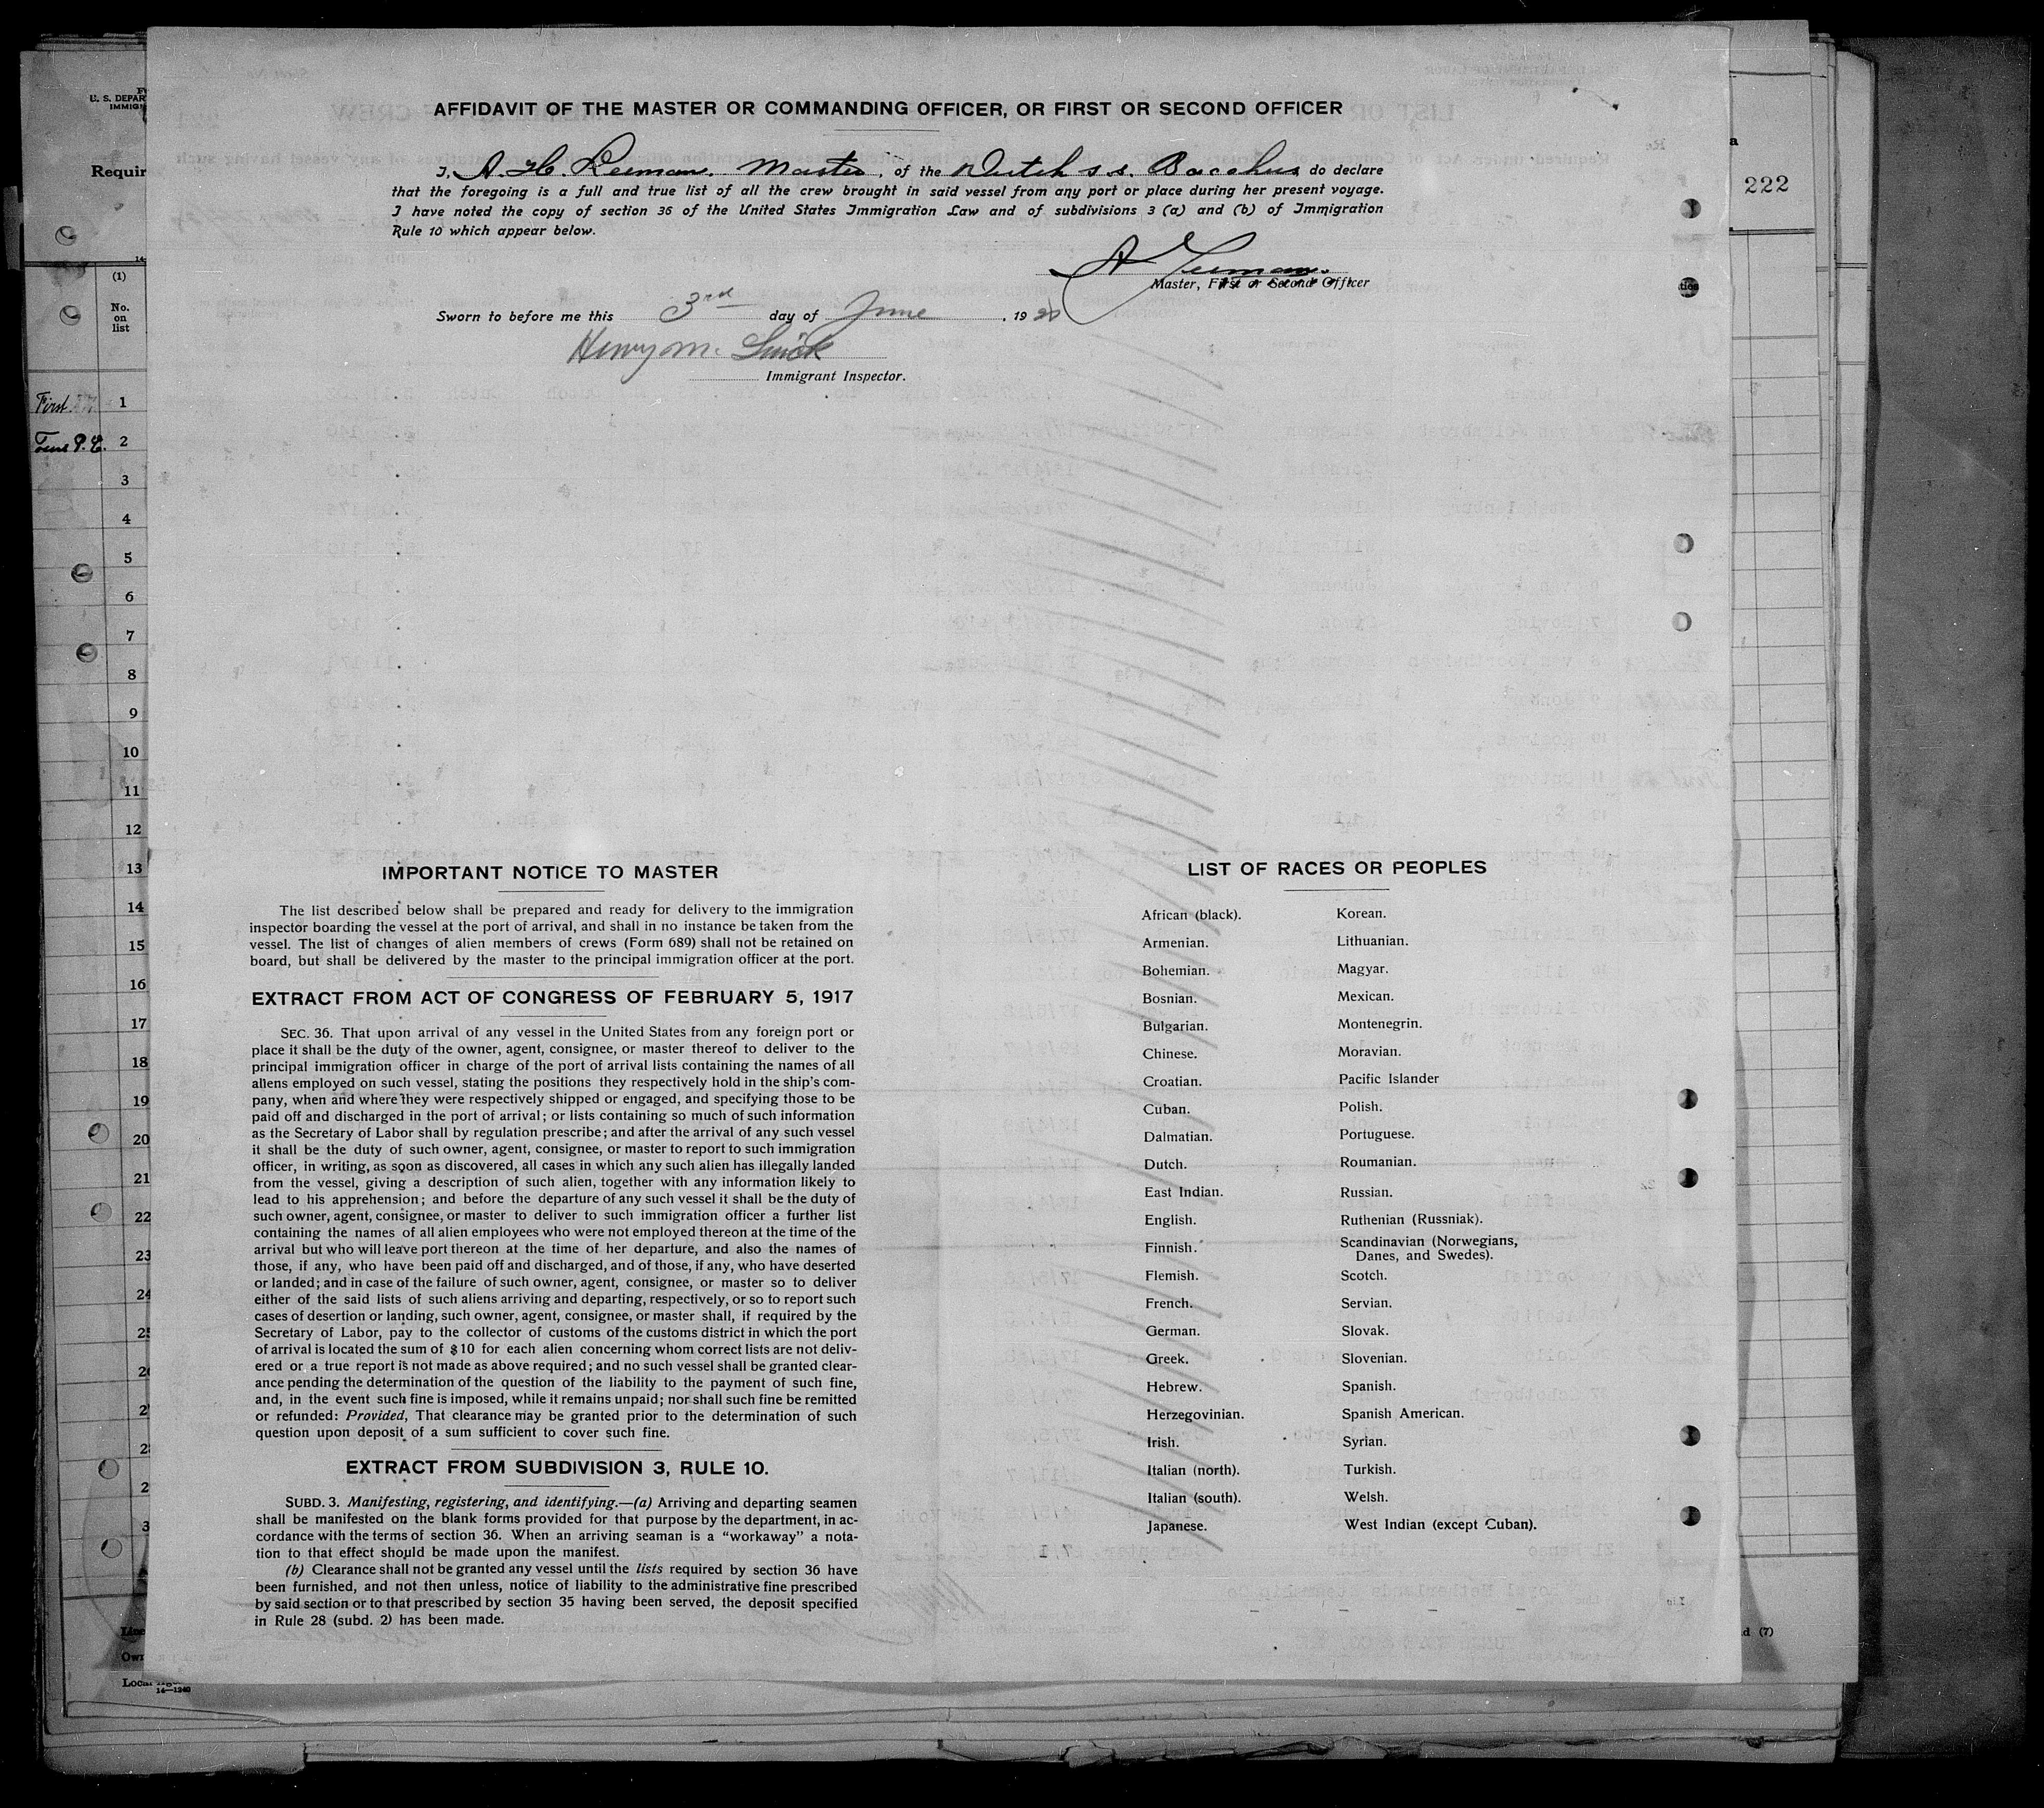 AFFIDAVIT OF THE MASTER OR COMMANDING OFFICER, OR FIRST OR SECOND OFFICER
I, A. H. Leeman. Master, of the Dutch s.s. Bacchus do declare
that the foregoing is a full and true list of all the crew brought in said vessel from any port or place during her present voyage.
I have noted the copy of section 36 of the United States Immigration Law and of subdivisions 3 (a) and (b) of Immigration
Rule 10 which appear below.
A Leeman.
Master, First or Second Officer
Sworn to before me this 3rd day of June, 19
Henry M.
Immigrant Inspector.
U. S. DEPAR
IMMIG
Requir
222
(1)
No.
on
list
First. 1
P.E. 2
3
4
5
6
7
8
9
10
11
12
13
14
15
16
17
18
19
20
21
22
23
24
IMPORTANT NOTICE TO MASTER
The list described below shall be prepared and ready for delivery to the immigration
inspector boarding the vessel at the port of arrival, and shall in no instance be taken from the
vessel. The list of changes of alien members of crews (Form 689) shall not be retained on
board, but shall be delivered by the master to the principal immigration officer at the port.
EXTRACT FROM ACT OF CONGRESS OF FEBRUARY 5, 1917
SEC. 36. That upon arrival of any vessel in the United States from any foreign port or
place it shall be the duty of the owner, agent, consignee, or master thereof to deliver to the
principal immigration officer in charge of the port of arrival lists containing the names of all
aliens employed on such vessel, stating the positions they respectively hold in the ship's com-
pany, when and where they were respectively shipped or engaged, and specifying those to be
paid off and discharged in the port of arrival; or lists containing so much of such information
as the Secretary of Labor shall by regulation prescribe; and after the arrival of any such vessel
it shall be the duty of such owner, agent, consignee, or master to report to such immigration
officer, in writing, as soon as discovered, all cases in which any such alien has illegally landed
from the vessel, giving a description of such alien, together with any information likely to
lead to his apprehension; and before the departure of any such vessel it shall be the duty of
such owner, agent, consignee, or master to deliver to such immigration officer a further list
containing the names of all alien employees who were not employed thereon at the time of the
arrival but who will leave port thereon at the time of her departure, and also the names of
those, if any, who have been paid off and discharged, and of those, if any, who have deserted
or landed; and in case of the failure of such owner, agent, consignee, or master so to deliver
either of the said lists of such aliens arriving and departing, respectively, or so to report such
cases of desertion or landing, such owner, agent, consignee, or master shall, if required by the
Secretary of Labor, pay to the collector of customs of the customs district in which the port
of arrival is located the sum of $10 for each alien concerning whom correct lists are not deliv-
ered or a true report is not made as above required; and no such vessel shall be granted clear-
ance pending the determination of the question of the liability to the payment of such fine,
and, in the event such fine is imposed, while it remains unpaid; nor shall such fine be remitted
or refunded: Provided, That clearance may be granted prior to the determination of such
question upon deposit of a sum sufficient to cover such fine.
EXTRACT FROM SUBDIVISION 3, RULE 10.
SUBD. 3. Manifesting, registering, and identifying.—(a) Arriving and departing seamen
shall be manifested on the blank forms provided for that purpose by the department, in ac-
cordance with the terms of section 36. When an arriving seaman is a "workaway" a nota-
tion to that effect should be made upon the manifest.
(b) Clearance shall not be granted any vessel until the lists required by section 36 have
been furnished, and not then unless, notice of liability to the administrative fine prescribed
by said section or to that prescribed by section 35 having been served, the deposit specified
in Rule 28 (subd. 2) has been made.
LIST OF RACES OR PEOPLES
African (black). Korean.
Armenian. Lithuanian.
Bohemian. Magyar.
Bosnian. Mexican.
Bulgarian. Montenegrin.
Chinese. Moravian.
Croatian. Pacific Islander
Cuban. Polish.
Dalmatian. Portuguese.
Dutch. Roumanian.
East Indian. Russian.
English. Ruthenian (Russniak).
Finnish. Scandinavian (Norwegians,
Danes, and Swedes).
Flemish. Scotch.
French. Servian.
German. Slovak.
Greek. Slovenian.
Hebrew. Spanish.
Herzegovinian. Spanish American.
Irish. Syrian.
Italian (north). Turkish.
Italian (south). Welsh.
Japanese. West Indian (except Cuban).
14—1240
d (7)